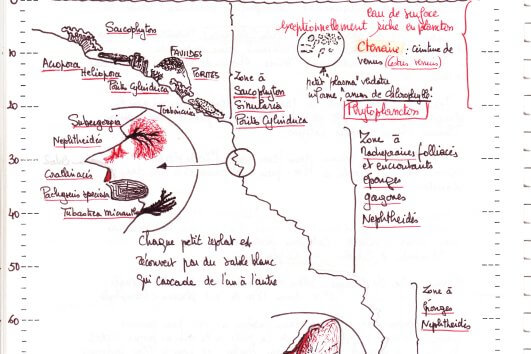 eau de surface
exceptionnellement riche en plancton
Ctenaire : ceinture de
venus (cestus veneris)
petit "plasma" vedette
infame "amas de chlorophylle"
Phytoplancton
Sarcophyton
FAVIIDES
PORITES
Acropora
Heliopora
Porites Cylindrica
Turbinaires
10
Zone à
Sarcophyton
Sinularia
Porites Cylindrica
20
Subergorgia
Nephtheidés
30
Corallinacés
Pachyseris speciosa
Tubastrea micrantha
40
Zone à
Madréporaires folliacés
et encroutants
éponges
gorgones
Nephtheidés
Chaque petit replat est
recouvert par du sable blanc
qui cascade de l'un à l'autre
50
Zone à
Éponges
Nephtheidés
60